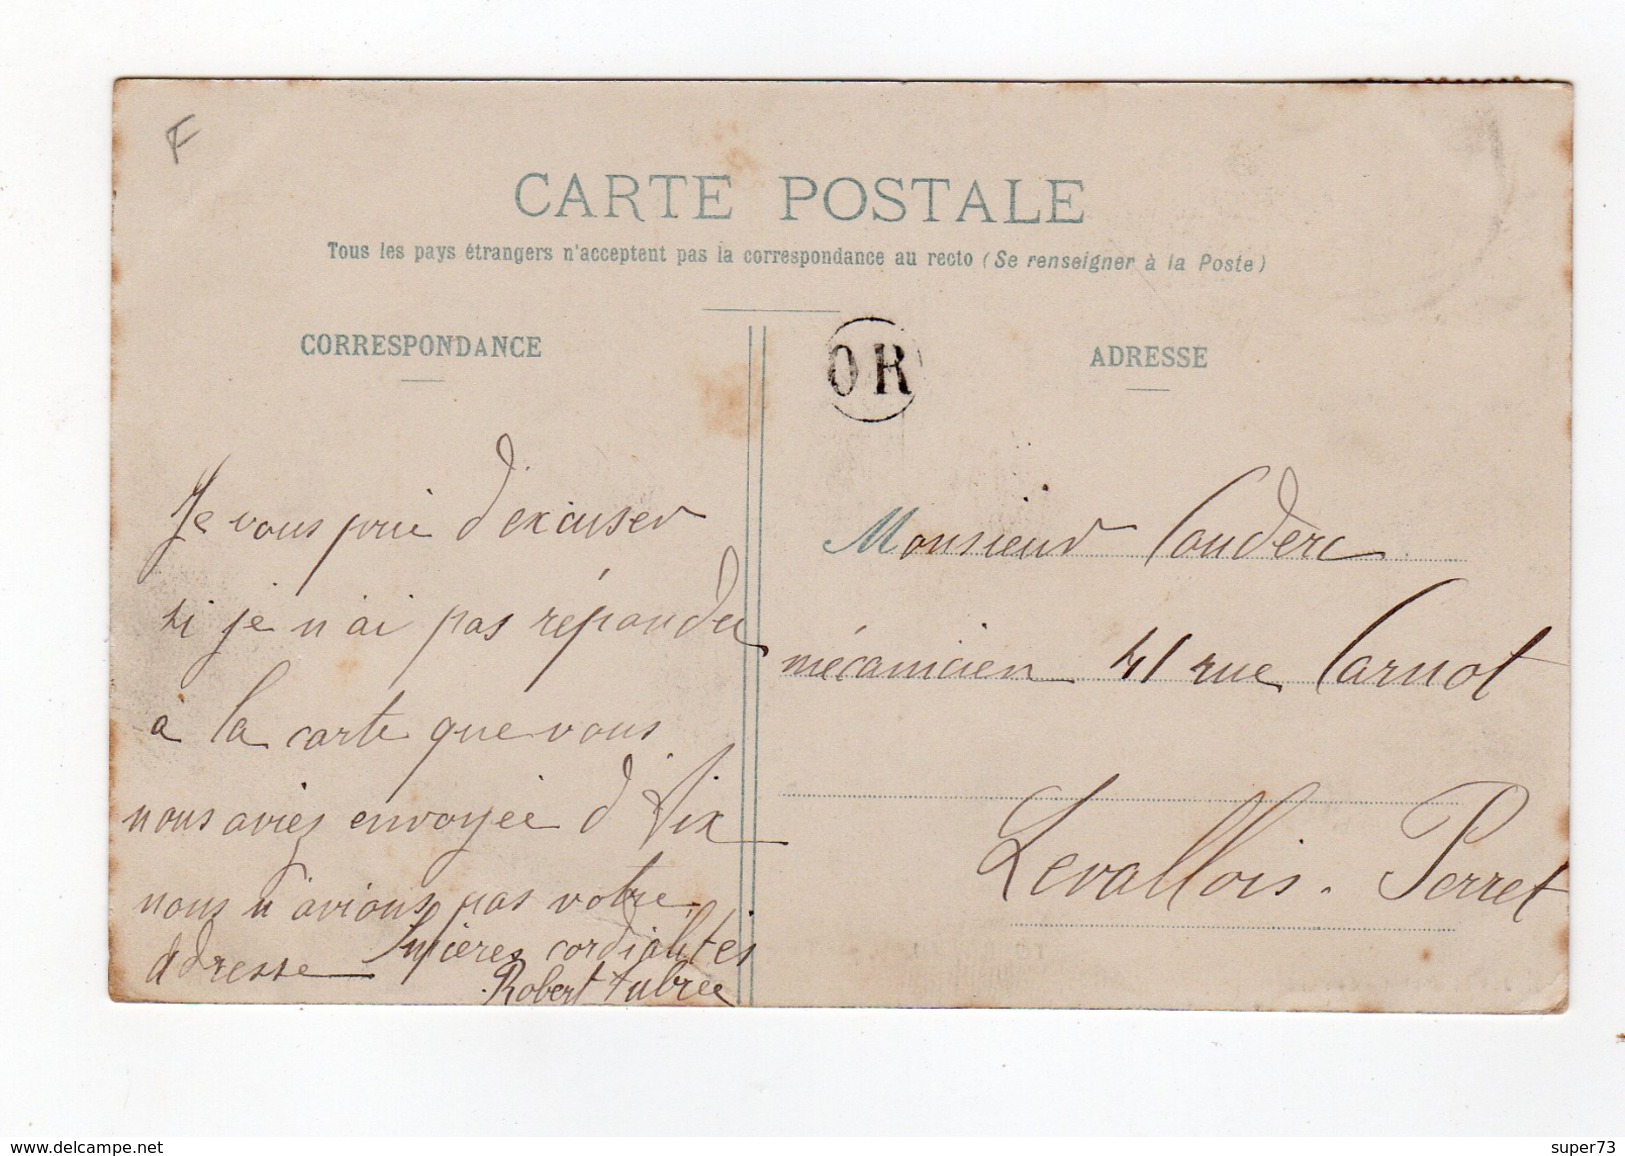 F
CARTE POSTALE
Tous les pays étrangers n'acceptent pas la correspondance au recto (Se renseigner à la Poste)
CORRESPONDANCE
Je vous prie d'excuser
si je n'ai pas répondu
à la carte que vous
nous aviez envoyée d'Aix
nous n'avions pas votre
adresse
Sincères cordialités
Robert Aubrée
OR
ADRESSE
Monsieur Couderc
mécanicien 41 rue Carnot
Levallois. Perret
delcampe.net
super73